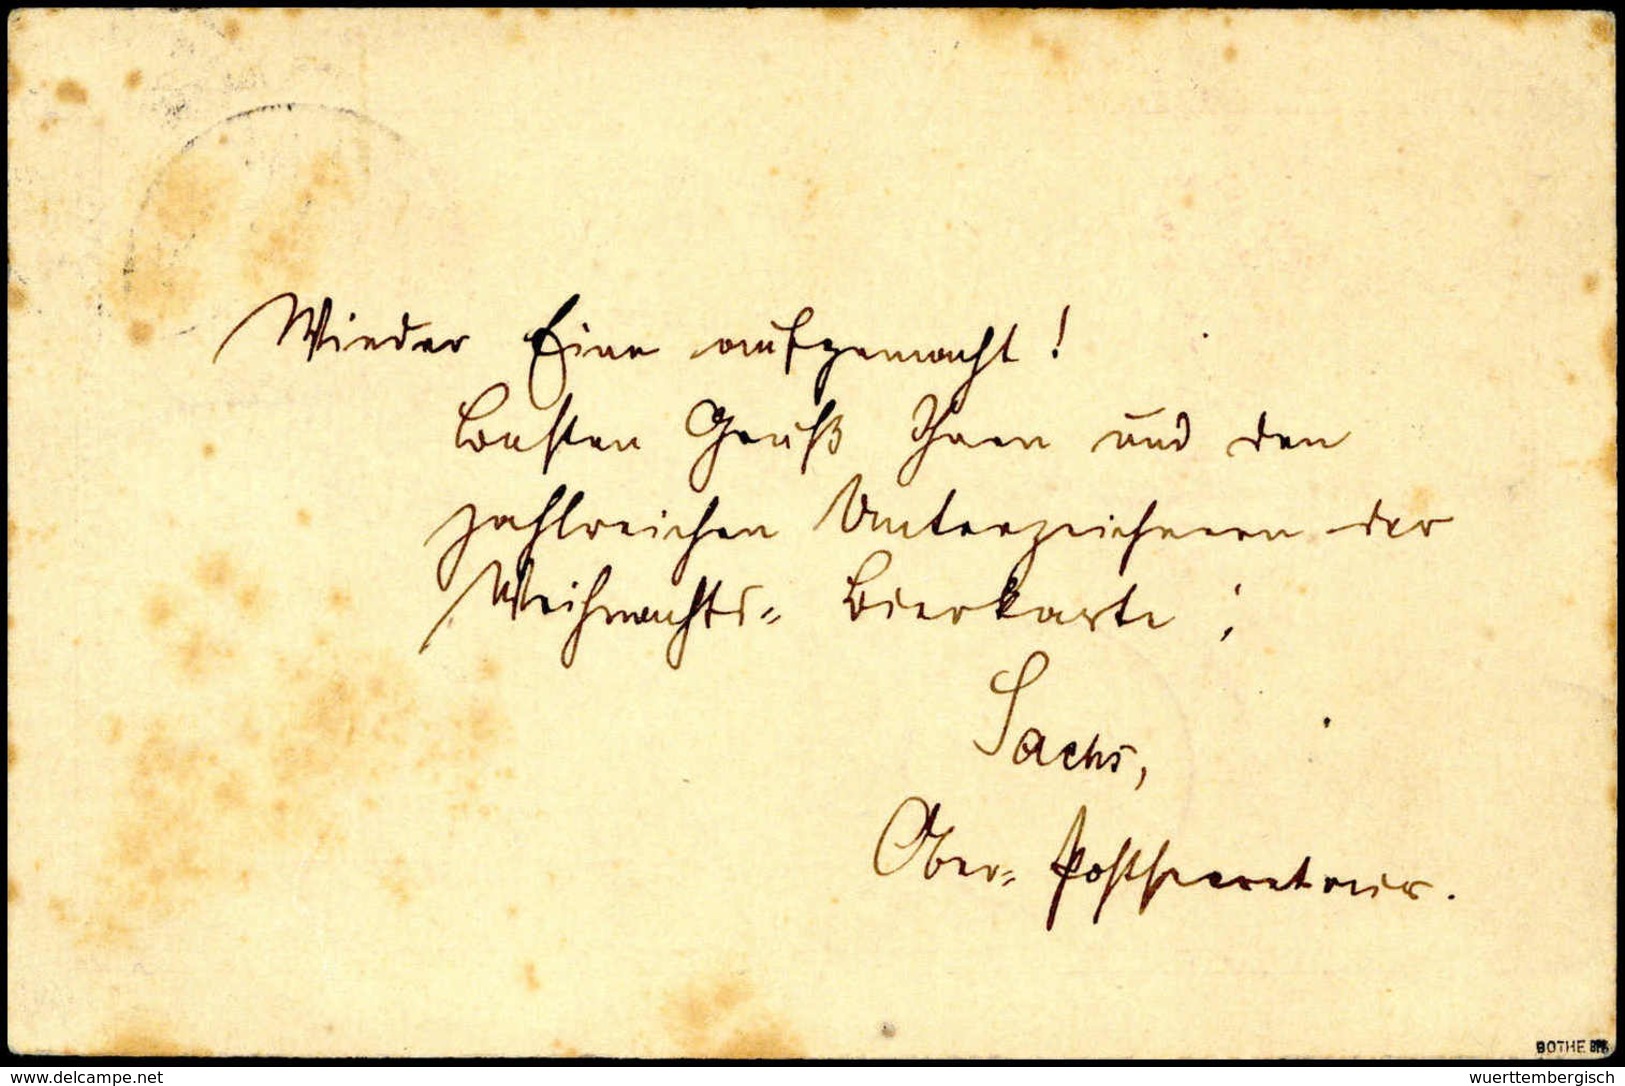 Wieder Eine aufgemacht!
Besten Gruß Ihnen und den
zahlreichen Unterzeichnern der
Weihnachts- Bierkarte;
Sachs,
Ober- Postsecretair.
BOTHE BPP
the-best-of-philately @ delcampe.net
wuerttembergisch